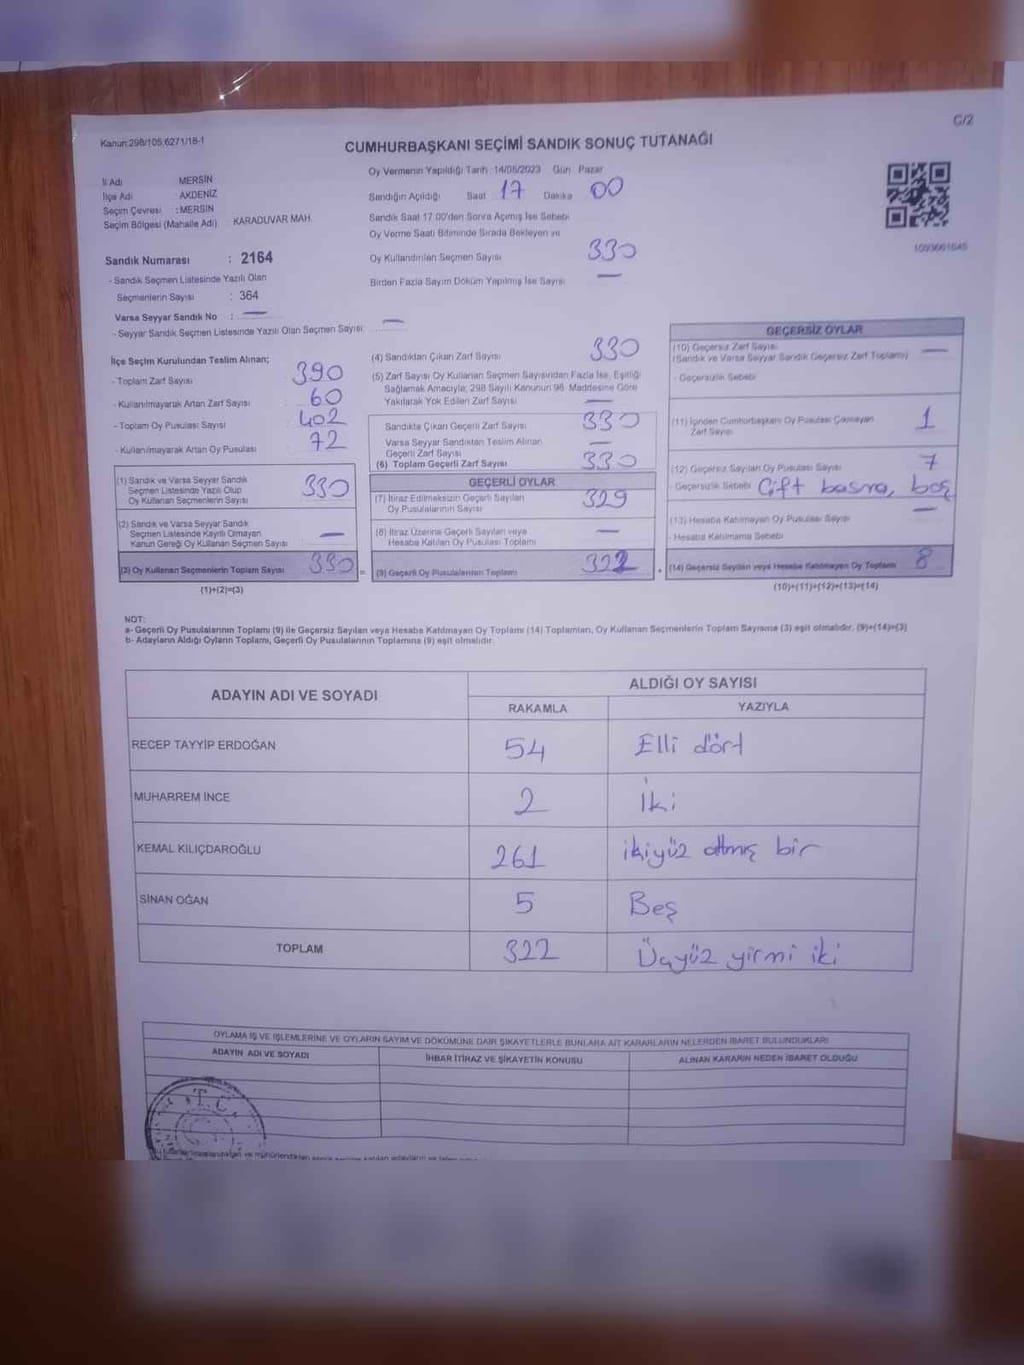 C/2
Kanun:298/105,6271/18-1
CUMHURBAŞKANI SEÇİMİ SANDIK SONUÇ TUTANAĞI
İl Adı MERSİN
İlçe Adı AKDENİZ
Seçim Çevresi : MERSİN
Seçim Bölgesi (Mahalle Adı) KARADUVAR MAH.
Oy Vermenin Yapıldığı Tarih : 14/05/2023 Gün: Pazar
Sandığın Açıldığı Saat 17 Dakika 00
Sandık Saat 17.00'den Sonra Açımış İse Sebebi
Oy Verme Saati Bitiminde Sırada Bekleyen ve
Oy Kullandırılan Seçmen Sayısı 330
Birden Fazla Sayım Döküm Yapılmış İse Sayısı —
1093661645
Sandık Numarası : 2164
- Sandık Seçmen Listesinde Yazılı Olan
Seçmenlerin Sayısı : 364
Varsa Seyyar Sandık No : —
- Seyyar Sandık Seçmen Listesinde Yazılı Olan Seçmen Sayısı: —
İlçe Seçim Kurulundan Teslim Alınan;
- Toplam Zarf Sayısı 390
- Kullanılmayarak Artan Zarf Sayısı 60
- Toplam Oy Pusulası Sayısı 402
- Kullanılmayarak Artan Oy Pusulası 72
(1) Sandık ve Varsa Seyyar Sandık
Seçmen Listesinde Yazılı Olup
Oy Kullanan Seçmenlerin Sayısı 330
(2) Sandık ve Varsa Seyyar Sandık
Seçmen Listesinde Kayıtlı Olmayan
Kanun Gereği Oy Kullanan Seçmen Sayısı —
(3) Oy Kullanan Seçmenlerin Toplam Sayısı 330
(1)+(2)=(3)
(4) Sandıktan Çıkan Zarf Sayısı 330
(5) Zarf Sayısı Oy Kullanan Seçmen Sayısından Fazla İse, Eşitliği
Sağlamak Amacıyla; 298 Sayılı Kanunun 98. Maddesine Göre
Yakılarak Yok Edilen Zarf Sayısı —
Sandıkta Çıkan Geçerli Zarf Sayısı 330
Varsa Seyyar Sandıktan Teslim Alınan
Geçerli Zarf Sayısı —
(6) Toplam Geçerli Zarf Sayısı 330
GEÇERLİ OYLAR
(7) İtiraz Edilmeksizin Geçerli Sayılan
Oy Pusulalarının Sayısı 329
(8) İtiraz Üzerine Geçerli Sayılan veya
Hesaba Katılan Oy Pusulası Toplamı —
(9) Geçerli Oy Pusulalarının Toplamı 322
GEÇERSİZ OYLAR
(10) Geçersiz Zarf Sayısı
(Sandık ve Varsa Seyyar Sandık Geçersiz Zarf Toplamı) —
- Geçersizlik Sebebi
(11) İçinden Cumhurbaşkanı Oy Pusulası Çıkmayan
Zarf Sayısı 1
(12) Geçersiz Sayılan Oy Pusulası Sayısı 7
- Geçersizlik Sebebi Çift basma, boş
(13) Hesaba Katılmayan Oy Pusulası Sayısı —
- Hesaba Katılmama Sebebi
(14) Geçersiz Sayılan veya Hesaba Katılmayan Oy Toplamı 8
(10)+(11)+(12)+(13)=(14)
NOT:
a- Geçerli Oy Pusulalarının Toplamı (9) ile Geçersiz Sayılan veya Hesaba Katılmayan Oy Toplamı (14) Toplamları, Oy Kullanan Seçmenlerin Toplam Sayısına (3) eşit olmalıdır. (9)+(14)=(3)
b- Adayların Aldığı Oyların Toplamı, Geçerli Oy Pusulalarının Toplamına (9) eşit olmalıdır.
ADAYIN ADI VE SOYADI ALDIĞI OY SAYISI
RAKAMLA YAZIYLA
RECEP TAYYİP ERDOĞAN 54 Elli dört
MUHARREM İNCE 2 İki
KEMAL KILIÇDAROĞLU 261 ikiyüz altmış bir
SİNAN OĞAN 5 Beş
TOPLAM 322 Üçyüz yirmi iki
OYLAMA İŞ VE İŞLEMLERİNE VE OYLARIN SAYIM VE DÖKÜMÜNE DAİR ŞİKAYETLERLE BUNLARA AİT KARARLARIN NELERDEN İBARET BULUNDUKLARI
ADAYIN ADI VE SOYADI İHBAR İTİRAZ VE ŞİKAYETİN KONUSU ALINAN KARARIN NEDEN İBARET OLDUĞU
T.C.